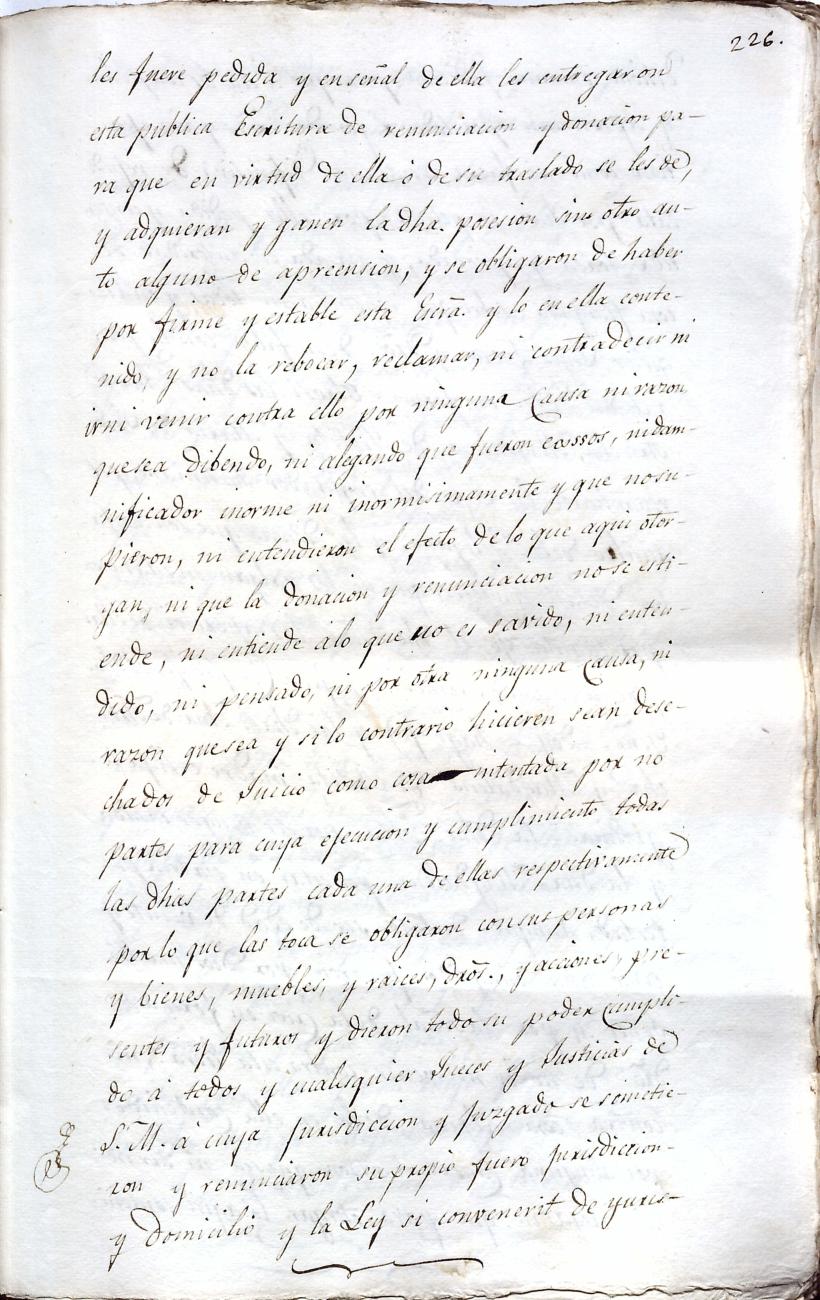 226.
les fuere pedida y en señal de ella les entregaron
esta publica Escritura de renunciacion y donacion pa-
ra que en virtud de ella ò de su traslado se les dè,
y adquieran y ganen la dha. posesion sin otro au-
to alguno de apreension, y se obligaron de haber
por firme y estable esta Escrã. y lo en ella conte-
nido, y no la rebocar, reclamar, ni contradecir ni
ir ni venir contra ello por ninguna Causa ni razon
que sea dibendo, ni alegando que fueron cassos, ni dam-
nificador inorme ni inormisimamente y que no su-
pieron, ni entendieron el efecto de lo que aqui otor-
gan, ni que la donacion y renunciacion no se esti-
ende, ni entiende a lo que no es savido, ni enten-
dido, ni pensado, ni por otra ninguna causa, ni
razon que sea y si lo contrario hicieren sean dese-
chados de Juicio como cosa intentada por no
partes para cuya efecucion y cumplimiento todas
las dhas partes cada una de ellas respectivamente
por lo que las toca se obligaron con sus personas
y bienes, muebles, y raices, dros., y acciones, pre-
sentes y futuros y dieron todo su poder cumpli-
do à todos y cualesquier Jueces y Justicias de
S. M. à cuya jurisdiccion y juzgado se sometie-
ron y renunciaron su propio fuero jurisdiccion-
y domicilio y la Ley si convenerit de yuris-